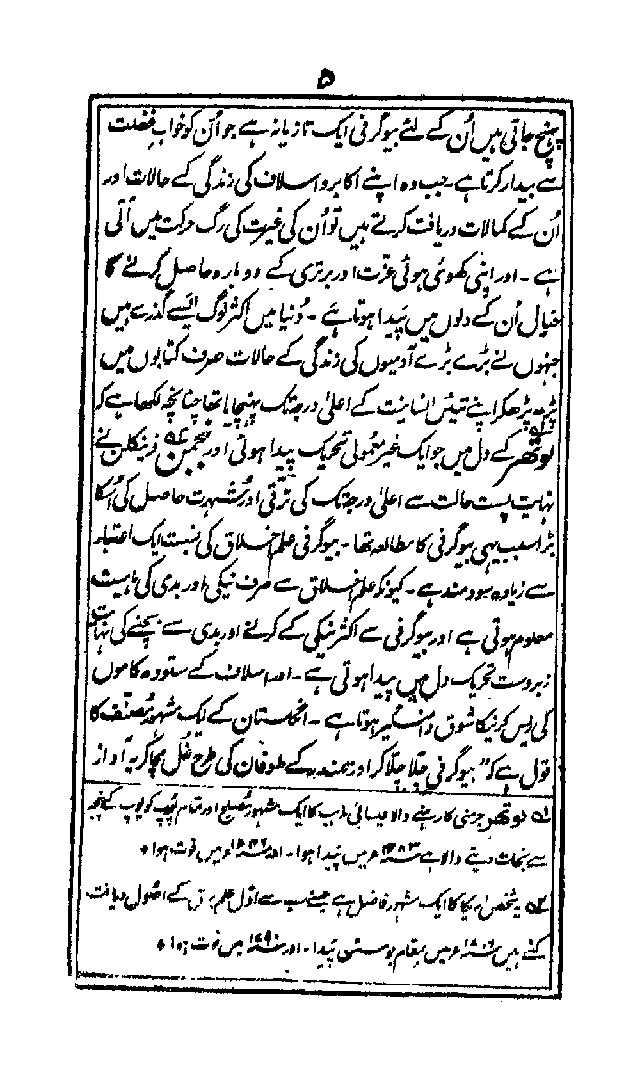 ۵
پہنچ جاتی ہیں اُن کے لئے بیوگرفی ایک تازیانہ ہے جو اُن کو خواب غفلت
سے بیدار کرتا ہے ۔ جب وہ اپنے اکابر و اسلاف کی زندگی کے حالات اور
اُن کے کمالات دریافت کرتے ہیں تو اُن کی غیرت کی رگ حرکت میں آتی
ہے ۔ اور اپنی کھوئی ہوئی عزّت اور برتری کے دوبارہ حاصل کرنے کا
خیال اُن کے دلوں میں پَیدا ہوتا ہے ۔ دُنیا میں اکثر لوگ ایسے گذرے ہیں
جنہوں نے بڑے بڑے آدمیوں کی زندگی کے حالات صرف کتابوں میں
پڑھ پڑھکر اپنے تئیں انسانیت کے اعلیٰ درجہ تک پہنچایا تھا چنانچہ لکھا ہے کہ
لوتھر ؎۱ کے دل میں جو ایک غیر معمولی تحریک پیدا ہوئی اور بنجمن ؎۲ فرنکلن نے
نہایت پست حالت سے اعلیٰ درجہ تک کی ترقی اور شہرت حاصل کی اُسکا
بڑا سبب یہی بیوگرفی کا مطالعہ تھا ۔ بیوگرفی علم اخلاق کی نسبت ایک اعتبار
سے زیادہ سودمند ہے ۔ کیونکہ علم اخلاق سے صرف نیکی اور بدی کی ماہیت
معلوم ہوتی ہے اور بیوگرفی سے اکثر نیکی کے کرنے اور بدی سے بچنے کی نہایت
زبردست تحریک دل میں پیدا ہوتی ہے ۔ اور اسلاف کے ستودہ کاموں
کی ریس کرنیکا شوق دامنگیر ہوتا ہے ۔ انگلستان کے ایک مشہور مُصنّف کا
قول ہے کہ "بیوگرفی چِلّا چِلّا کر اور سمندر کے طوفان کی طرح غُل مچا کر یہ آواز
؎۱ لوتھر جرمنی کا رہنے والا عیسائی مذہب کا ایک مشہور مصلح اور تمام یُورپ کو پوپ کے پنجہ
سے نجات دینے والا ہے ۱۴۸۳ء میں پیدا ہوا ۔ اور ۱۵۴۶ء میں فوت ہوا ٭
؎۲ یہ شخص امریکا کا ایک مشہور فاضل ہے جسنے سب سے اوّل علم برق کے اصول دریافت
کئے ہیں ۱۷۰۶ء میں بمقام بوسٹن پَیدا ۔ اور ۱۷۹۰ء میں فوت ہوا ٭